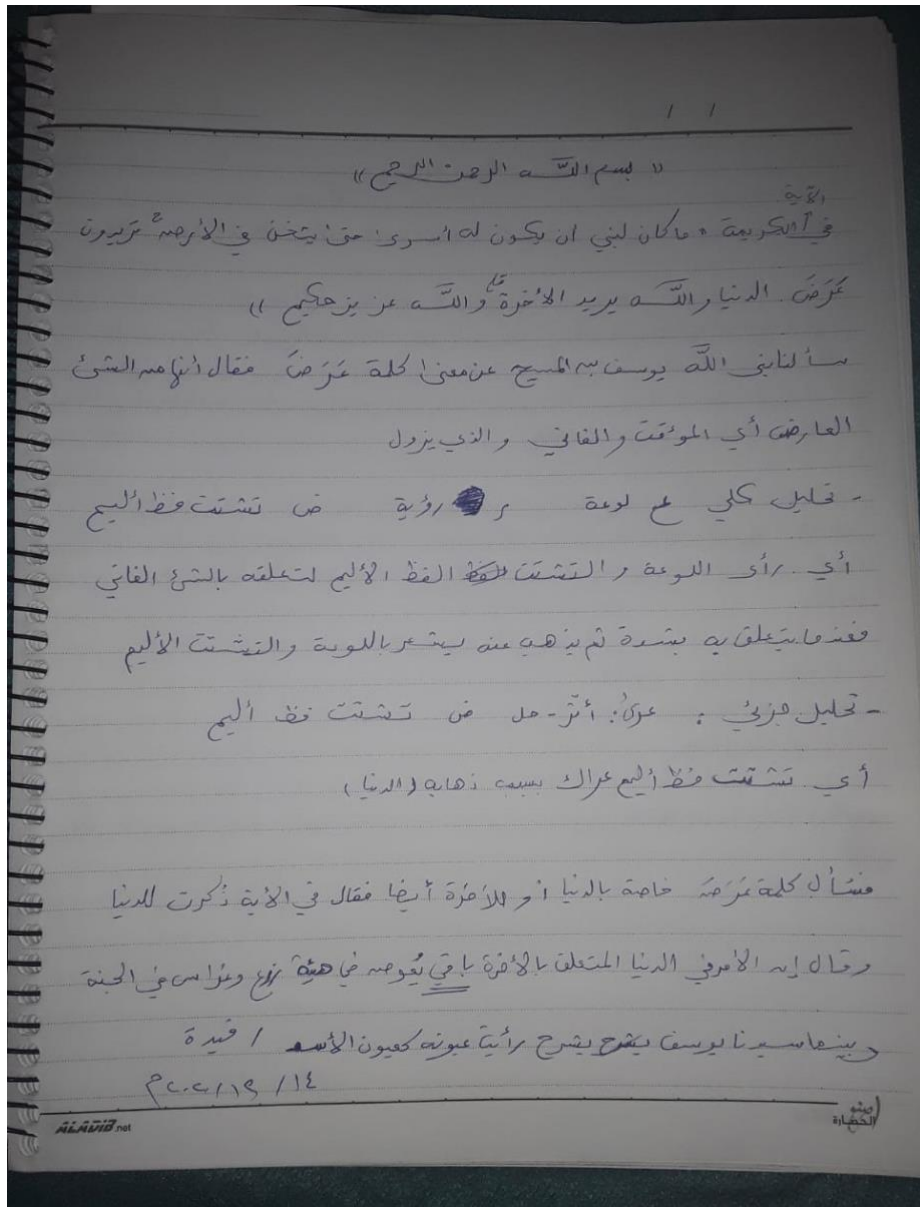 / /
(( بسم اللَّـه الرحمن الرحيم ))
الآية
في الكريمة " ما كان لنبي ان يكون له أسرى حتى يثخن في الأرض تريدون
عَرَضَ الدنيا واللَّـه يريد الأخرة واللَّـه عزيز حكيم ))
سألنا نبي اللَّه يوسف بن المسيح عن معنى كلمة عَرَضَ فقال أنها من الشئ
العارض أي المؤقت والفاني والذي يزول
- تحليل كلي عـ لوعة ر رؤية ض تشتت فظ أليم
أي رأى اللوعة و التشتت الفظ الأليم لتعلقه بالشئ الفاني
فعندما يتعلق به بشدة ثم يذهب عنه يشعر باللوعة والتشتت الأليم
- تحليل جزئي : عرى: أثر - حل ض تشتت فظ أليم
أي تشتت فظ أليم عراك بسبب ذهابه (الدنيا)
كلمة عَرَضَ خاصة بالدنيا أو للآخرة أيضا فقال في الأية ذُكرت للدنيا
وقال إن الأمر في الدنيا المتعلق بالأخرة باقي يُعوض في هيئة زرع وغراس في الجنة
وبينما سيدنا يوسف يشرح رأيتُ عيونه كعيون الأسد /
١٤ / ١٢ / ٢٠٢٠م
ALADIB.net
الحضارة